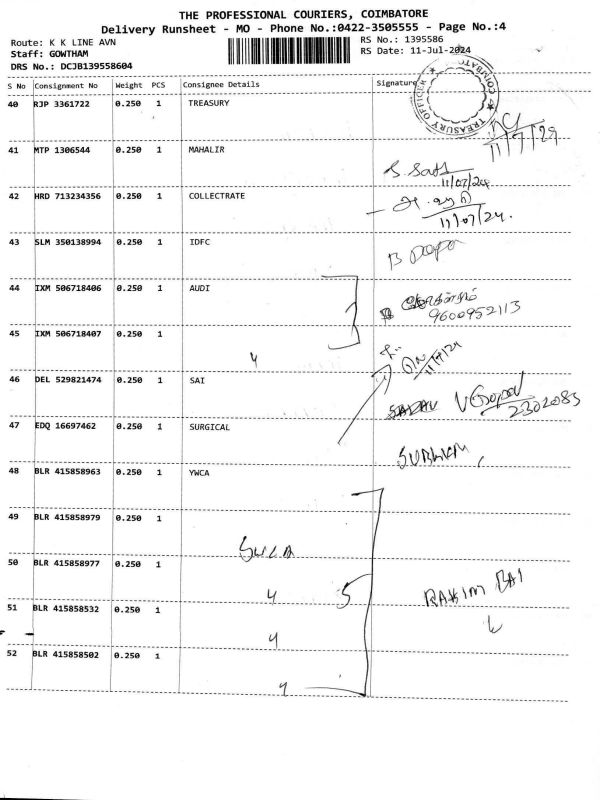 THE PROFESSIONAL COURIERS, COIMBATORE
Delivery Runsheet - MO - Phone No.:0422-3505555 - Page No.:4
Route: K K LINE AVN
RS No.: 1395586
Staff: GOWTHAM
RS Date: 11-Jul-2024
DRS No.: DCJB139558604
S No Consignment No Weight PCS Consignee Details Signature
TREASURY OFFICER COIMBATORE
40 RJP 3361722 0.250 1 TREASURY
11/7/24
41 MTP 1306544 0.250 1 MAHALIR
11/07/24
42 HRD 713234356 0.250 1 COLLECTRATE
11/07/24.
43 SLM 350138994 0.250 1 IDFC
B Deepa
44 IXM 506718406 0.250 1 AUDI
9600952113
45 IXM 506718407 0.250 1
11/7/24
46 DEL 529821474 0.250 1 SAI
2302085
47 EDQ 16697462 0.250 1 SURGICAL
48 BLR 415858963 0.250 1 YWCA
49 BLR 415858979 0.250 1
50 BLR 415858977 0.250 1
5
RAHIM BAI
51 BLR 415858532 0.250 1
52 BLR 415858502 0.250 1